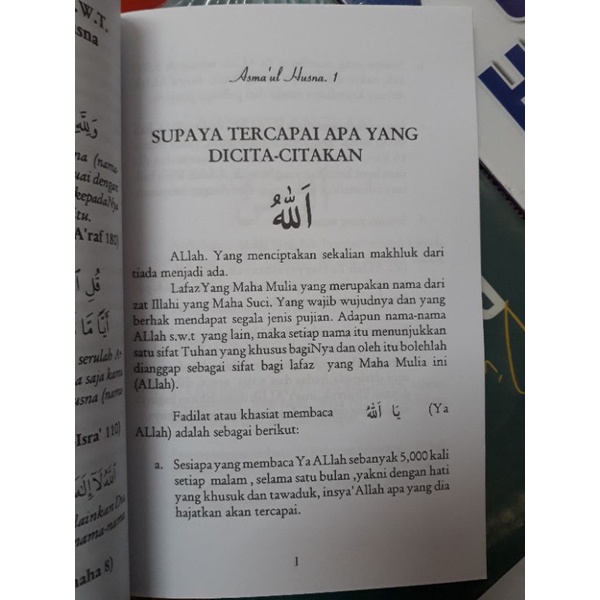 W.T.
usna
na (nama
uai dengan
kepadaNya
itu.
A'raf 180)
serulah A-
a saja kamu
usna (nama
Isra' 110)
lainkan Dia
nama-nama
haha 8)
Asma'ul Husna. 1
SUPAYA TERCAPAI APA YANG
DICITA-CITAKAN
اَللّٰهُ
ALlah. Yang menciptakan sekalian makhluk dari
tiada menjadi ada.
Lafaz Yang Maha Mulia yang merupakan nama dari
zat Illahi yang Maha Suci. Yang wajib wujudnya dan yang
berhak mendapat segala jenis pujian. Adapun nama-nama
ALlah s.w.t yang lain, maka setiap nama itu menunjukkan
satu sifat Tuhan yang khusus bagiNya dan oleh itu bolehlah
dianggap sebagai sifat bagi lafaz yang Maha Mulia ini
(ALlah).
Fadilat atau khasiat membaca يَا اَللّٰهُ (Ya
ALlah) adalah sebagai berikut:
a. Sesiapa yang membaca Ya ALlah sebanyak 5,000 kali
setiap malam , selama satu bulan ,yakni dengan hati
yang khusuk dan tawaduk, insya'Allah apa yang dia
hajatkan akan tercapai.
1